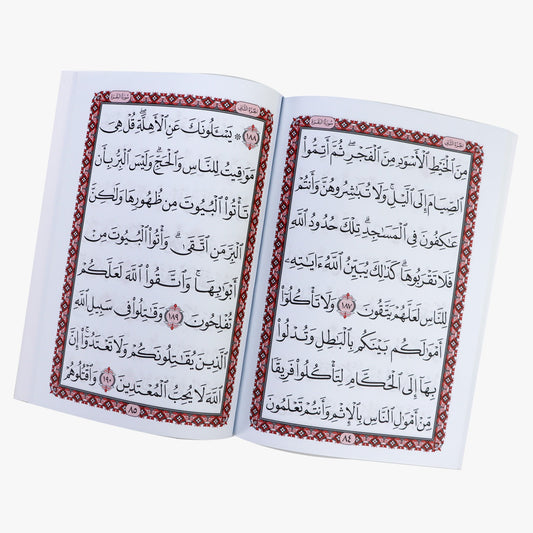 سورة البقرة
الجزء الثاني
مِنَ ٱلْخَيْطِ ٱلْأَسْوَدِ مِنَ ٱلْفَجْرِ ۖ ثُمَّ أَتِمُّوا۟
ٱلصِّيَامَ إِلَى ٱلَّيْلِ ۚ وَلَا تُبَـٰشِرُوهُنَّ وَأَنتُمْ
عَـٰكِفُونَ فِى ٱلْمَسَـٰجِدِ ۗ تِلْكَ حُدُودُ ٱللَّهِ
فَلَا تَقْرَبُوهَا ۗ كَذَٰلِكَ يُبَيِّنُ ٱللَّهُ ءَايَـٰتِهِۦ
لِلنَّاسِ لَعَلَّهُمْ يَتَّقُونَ ١٨٧ وَلَا تَأْكُلُوٓا۟
أَمْوَٰلَكُم بَيْنَكُم بِٱلْبَـٰطِلِ وَتُدْلُوا۟
بِهَآ إِلَى ٱلْحُكَّامِ لِتَأْكُلُوا۟ فَرِيقًا
مِّنْ أَمْوَٰلِ ٱلنَّاسِ بِٱلْإِثْمِ وَأَنتُمْ تَعْلَمُونَ
٨٤
سورة البقرة
الجزء الثاني
١٨٨ ۞ يَسْـَٔلُونَكَ عَنِ ٱلْأَهِلَّةِ ۖ قُلْ هِىَ
مَوَٰقِيتُ لِلنَّاسِ وَٱلْحَجِّ ۗ وَلَيْسَ ٱلْبِرُّ بِأَن
تَأْتُوا۟ ٱلْبُيُوتَ مِن ظُهُورِهَا وَلَـٰكِنَّ
ٱلْبِرَّ مَنِ ٱتَّقَىٰ ۗ وَأْتُوا۟ ٱلْبُيُوتَ مِنْ
أَبْوَٰبِهَا ۚ وَٱتَّقُوا۟ ٱللَّهَ لَعَلَّكُمْ
تُفْلِحُونَ ١٨٩ وَقَـٰتِلُوا۟ فِى سَبِيلِ ٱللَّهِ
ٱلَّذِينَ يُقَـٰتِلُونَكُمْ وَلَا تَعْتَدُوٓا۟ ۚ إِنَّ
ٱللَّهَ لَا يُحِبُّ ٱلْمُعْتَدِينَ ١٩٠ وَٱقْتُلُوهُمْ
٨٥